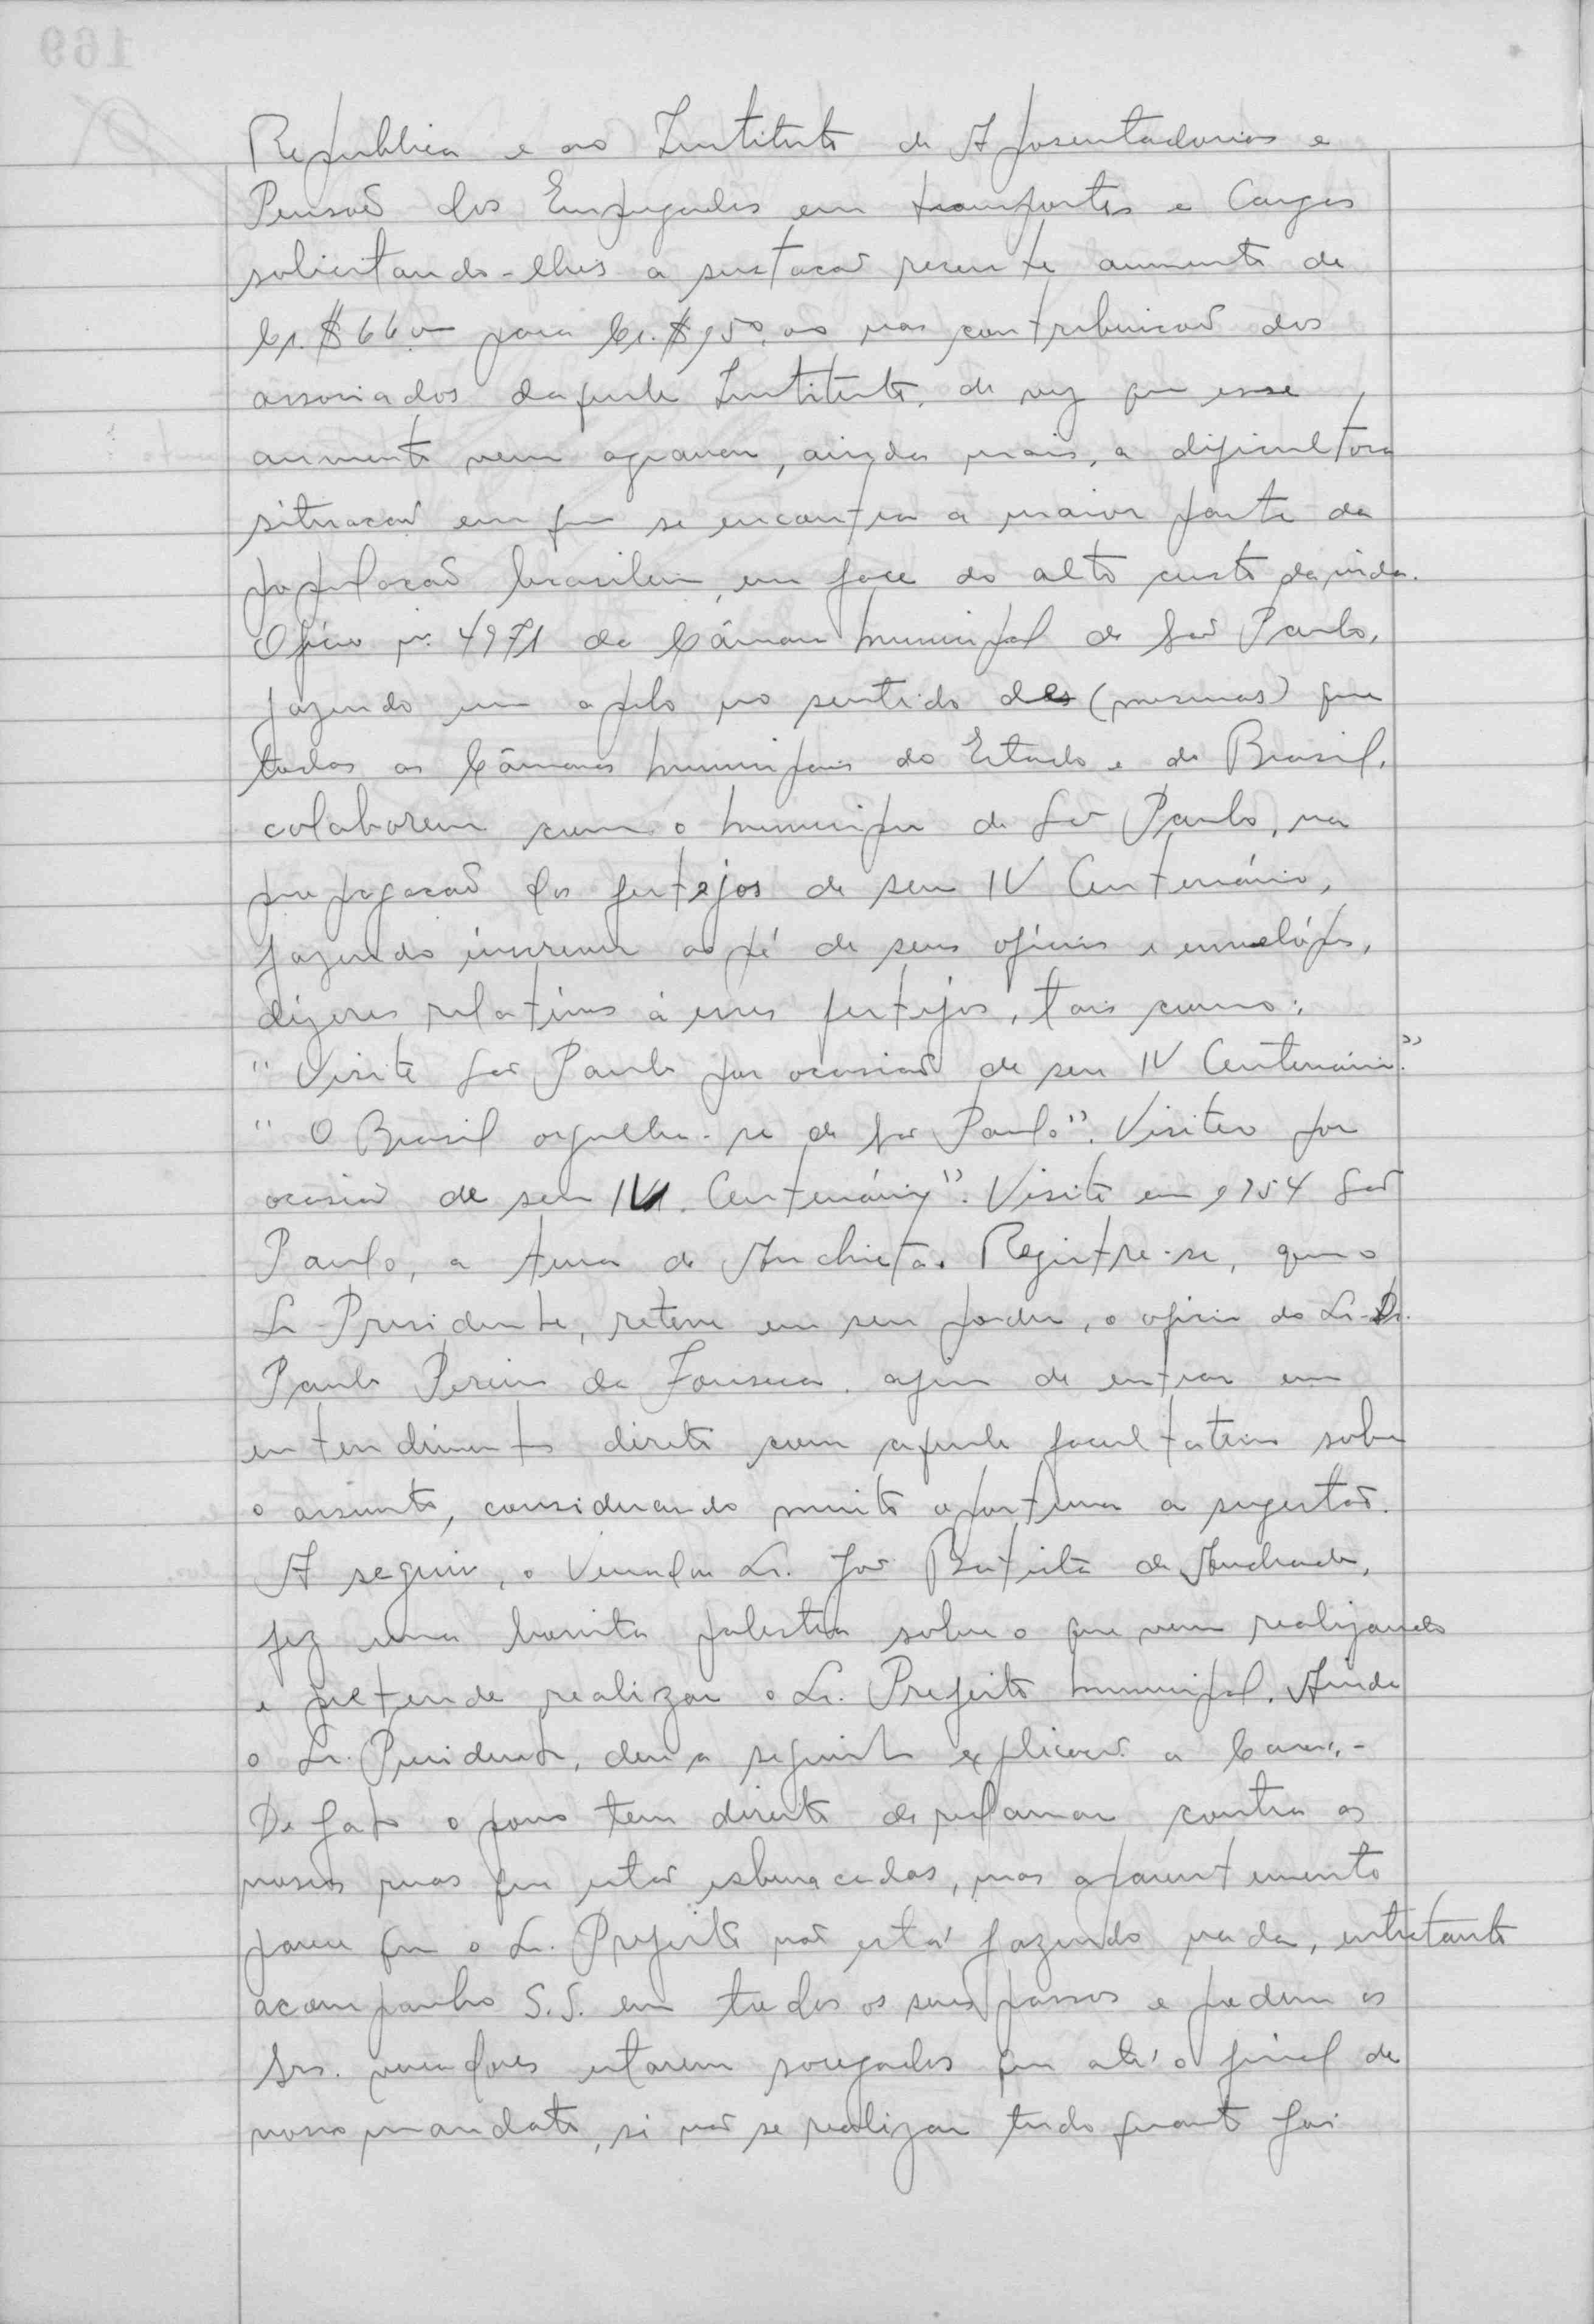 Republica e ao Instituto de Aposentadorias e
Pensão dos Empregados em transportes e Cargas
solicitando-lhes a sustação recente aumento de
Cr.$ 66,00 para Cr.$ 150,00 nas contribuição dos
associados daquele Instituto, de vez que esse
aumento vem agravar, ainda mais, a dificultosa
situação em que se encontra a maior parte da
população brasileira, em face do alto custo da vida.
Oficio nº 4971 da Câmara Municipal de São Paulo,
fazendo um apelo no sentido des (mesmas) que
todas as Câmaras Municipais do Estado e do Brasil,
colaborem com o Municipio de São Paulo, na
propagação dos festejos de seu IV Centenário,
fazendo inscrever ao pé de seus oficios e envelópes,
dizeres relativos á esses festejos, tais como:
"Visite São Paulo por ocasião de seu IV Centenário."
"O Brasil orgulha-se de São Paulo". Visite-o por
ocasião de seu IV. Centenário". Visite em 1954 São
Paulo, a terra de Anchieta. Registre-se, que o
Sr. Presidente, reteve em seu poder, o oficio do Sr. Dr.
Paulo Pereira da Fonseca, afim de entrar em
entendimento direto com aquele facultativo sobre
o assunto, considerando muito oportuna a sugestão.
A seguir, o Vereador Sr. José Batista de Andrade,
fez uma bonita palestra sobre o que vem realizando
e pretende realizar o Sr. Prefeito Municipal. Ainda
o Sr. Presidente, deu a seguinte explicação a Casa:-
De fato o povo tem direito de reclamar contra as
nossas ruas que estão esburacadas, mas aparentemento
parece que o Sr. Prefeito não está fazendo nada, entretanto
acompanho S.S. em todos os seus passos e podem os
Srs. vereadores estarem socegados que até o final de
nosso mandato, si não se realizar tudo quanto foi
169